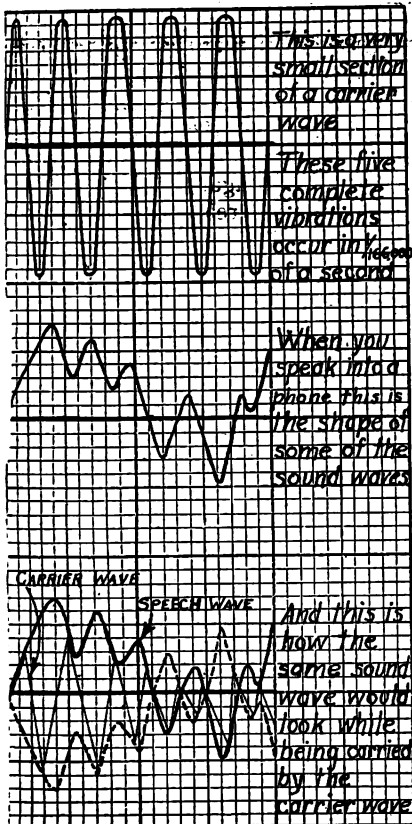 This is a very
small section
of a carrier
wave
These five
complete
vibrations
occur in 1/166,000
of a second
When you
speak into a
phone this is
the shape of
some of the
sound waves
CARRIER WAVE
SPEECH WAVE
And this is
how the
same sound
wave would
look while
being carried
by the
carrier wave